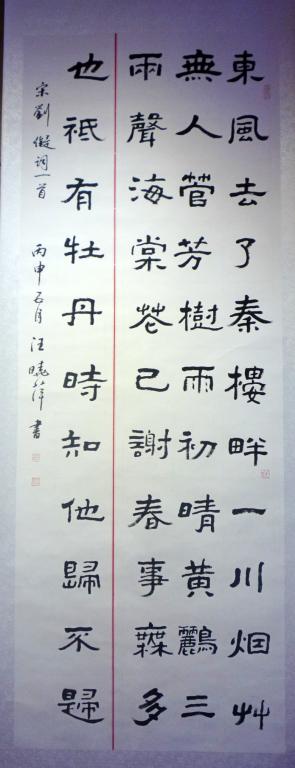 東風去了秦樓畔一川烟艸
無人管芳樹雨初晴黃鸝三
兩聲海棠花已謝春事橆多
也祇有牡丹時知他歸不歸
宋劉儗詞一首
丙申五月汪曉萍書